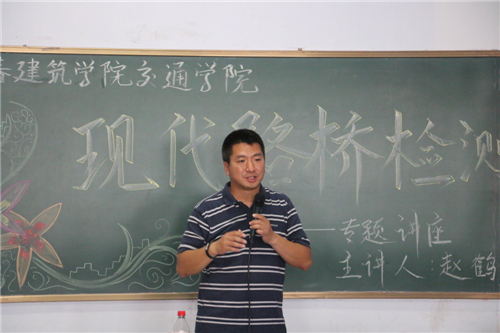 春建筑学院交通学院
现代路桥检测
——专题讲座
主讲人:赵鹤